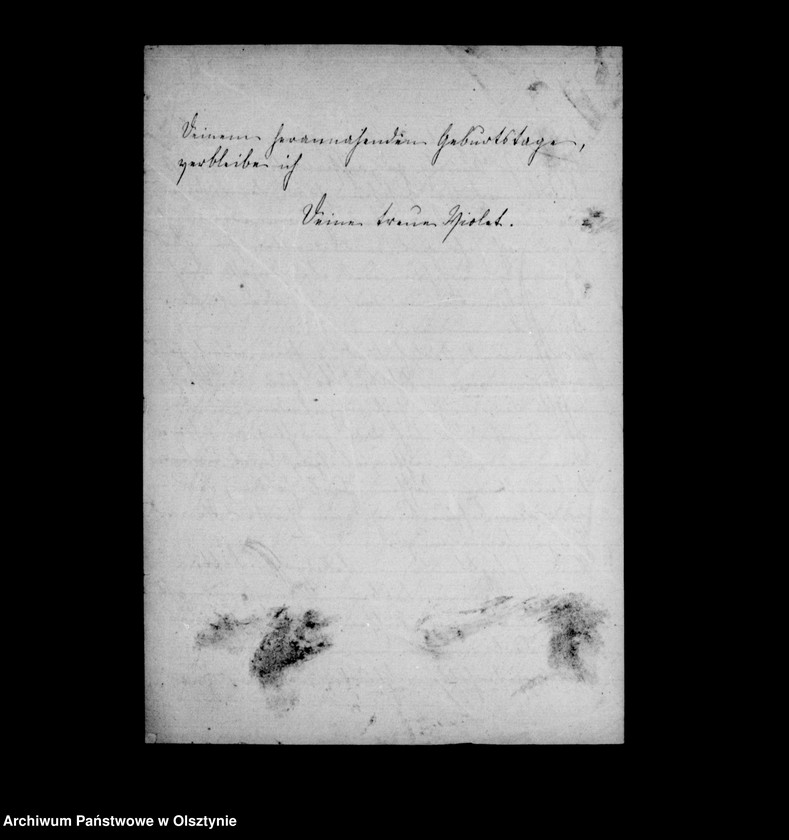 Deinem herannahenden Geburtstage,
verbleibe ich
Deine treue Violet.
Archiwum Państwowe w Olsztynie